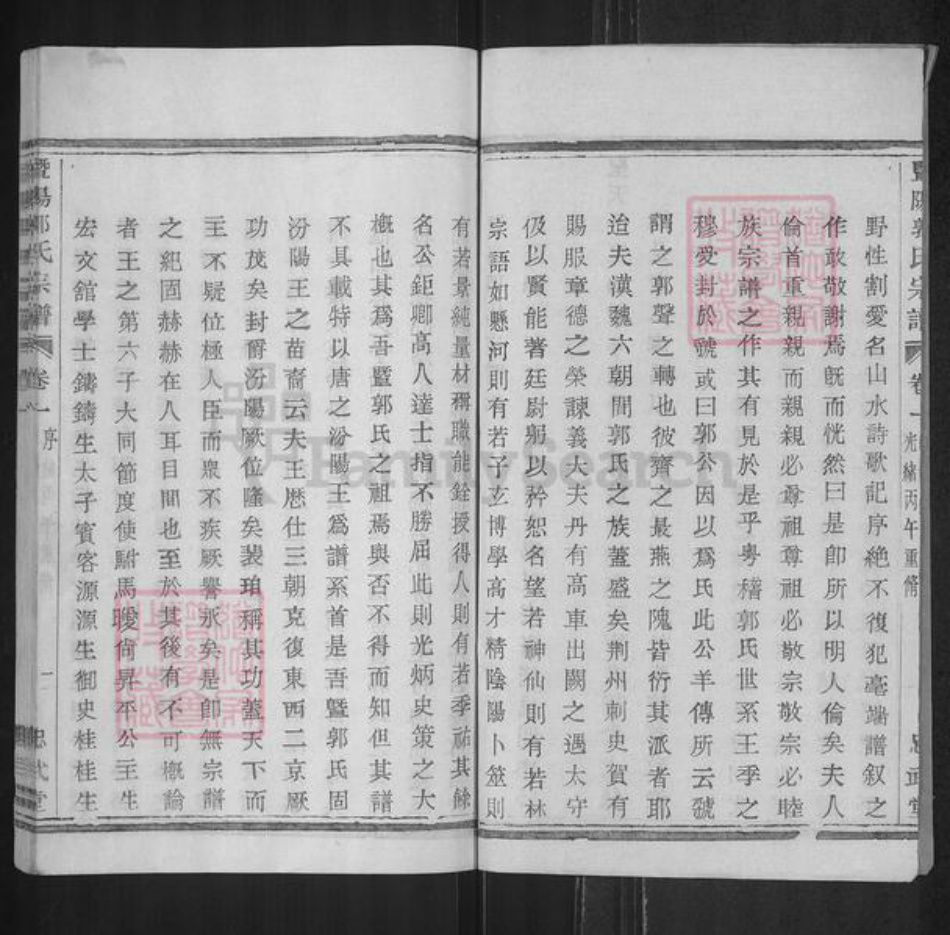 暨陽郭氏宗譜 卷一 光緒丙午重脩 忠武堂
野性割愛名山水詩歌記序絶不復犯毫端譜叙之
作敢敬謝焉旣而恍然曰是卽所以明人倫矣夫人
倫首重親親而親親必尊祖尊祖必敬宗敬宗必睦
族宗譜之作其有見於是乎粤稽郭氏世系王季之
穆受封於虢或曰郭公因以爲氏此公羊傳所云虢
謂之郭聲之轉也彼齊之最燕之隗皆衍其派者耶
迨夫漢魏六朝間郭氏之族蓋盛矣荆州刺史賀有
賜服章德之榮諫義大夫丹有高車出關之遇太守
伋以賢能著廷尉躬以矜恕名望若神仙則有若林
宗語如懸河則有若子玄博學高才精陰陽卜筮則
有若景純量材稱職能銓授得人則有若季祐其餘
名公鉅卿高人達士指不勝屈此則光炳史策之大
槪也其爲吾暨郭氏之祖焉與否不得而知但其譜
不具載特以唐之汾陽王爲譜系首是吾暨郭氏固
汾陽王之苗裔云夫王歴仕三朝克復東西二京厥
功茂矣封爵汾陽厥位隆矣裴珀稱其功蓋天下而
主不疑位極人臣而衆不疾厥譽永矣是卽無宗譜
之紀固赫赫在人耳目間也至於其後有不可槪論
者王之第六子大同節度使駙馬曖尙昇平公主生
宏文舘學士鑄鑄生太子賓客源源生御史桂桂生
暨陽郭氏宗譜 卷一 序 一 忠武堂
FamilySearch